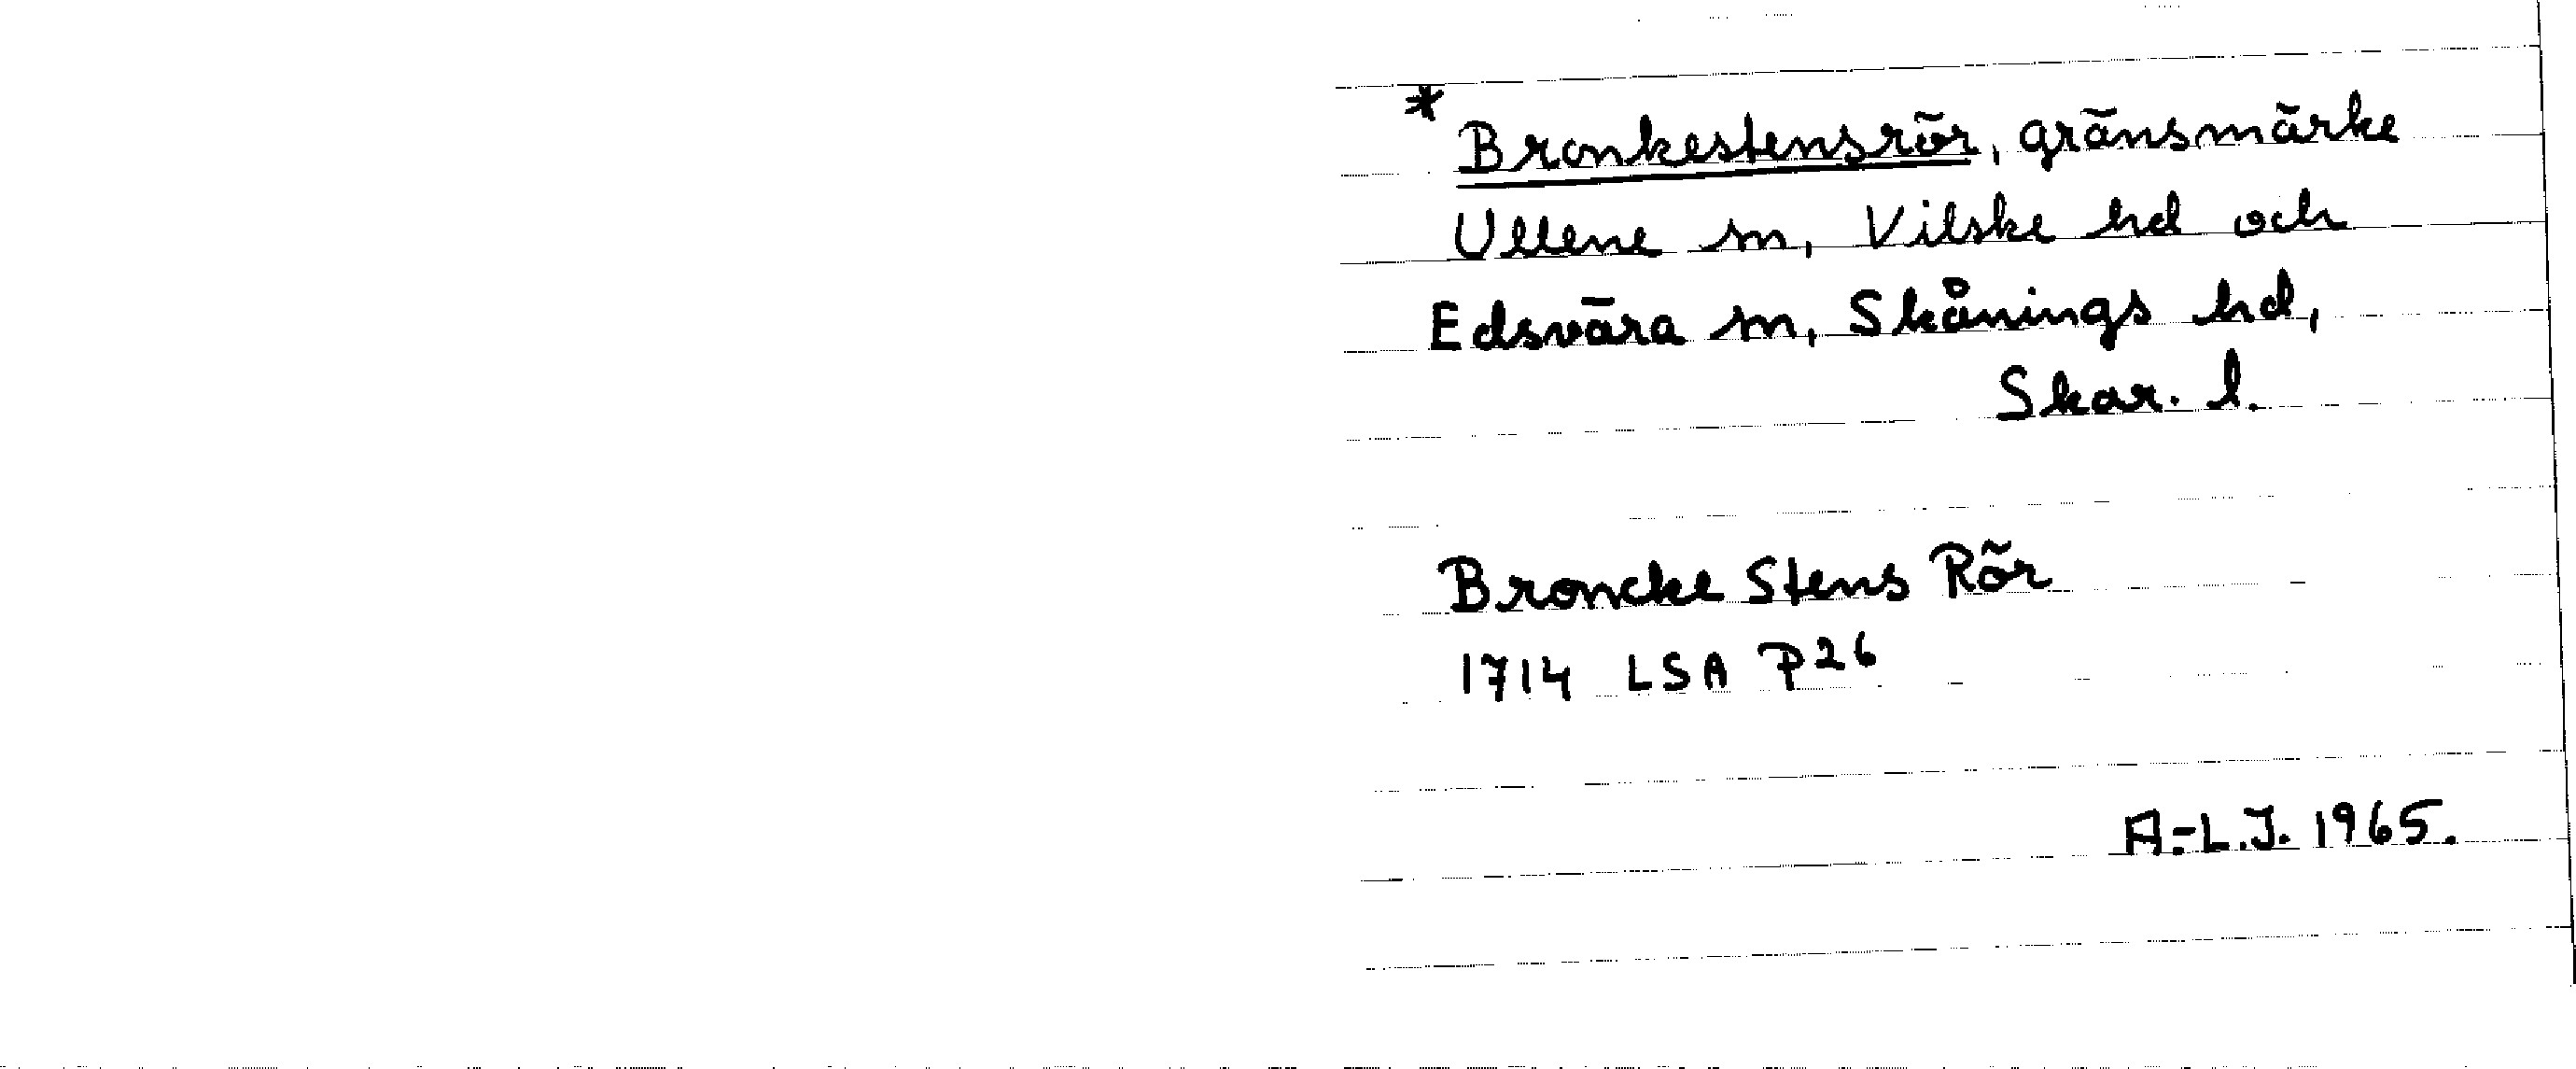 * Bronkestensrör, gränsmärke
Ullene sn, Vilske hd och
Edsvära sn, Skånings hd,
Skar. l.
Broncke Stens Rör
1714 LSA P26
A.-L.J. 1965.